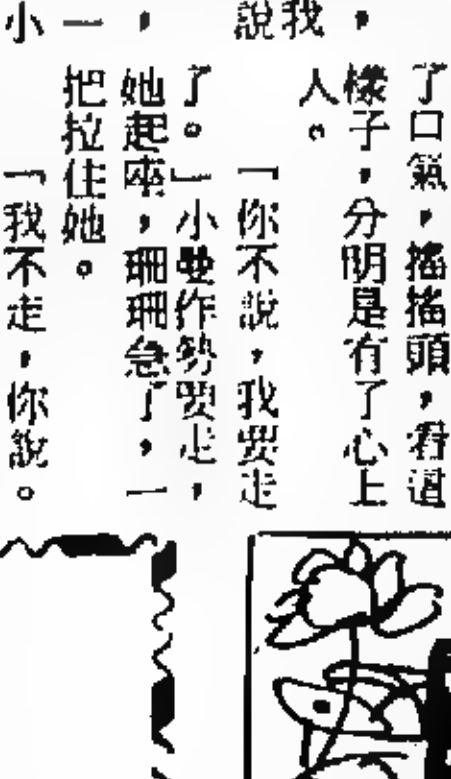 ，
我
說
，
一
小
了口氣，搖搖頭，看這
樣子，分明是有了心上
人。
「你不說，我要走
了。」小作勢要走，
她起座，珊珊急了，一
把拉住她。
「我不走，你說。